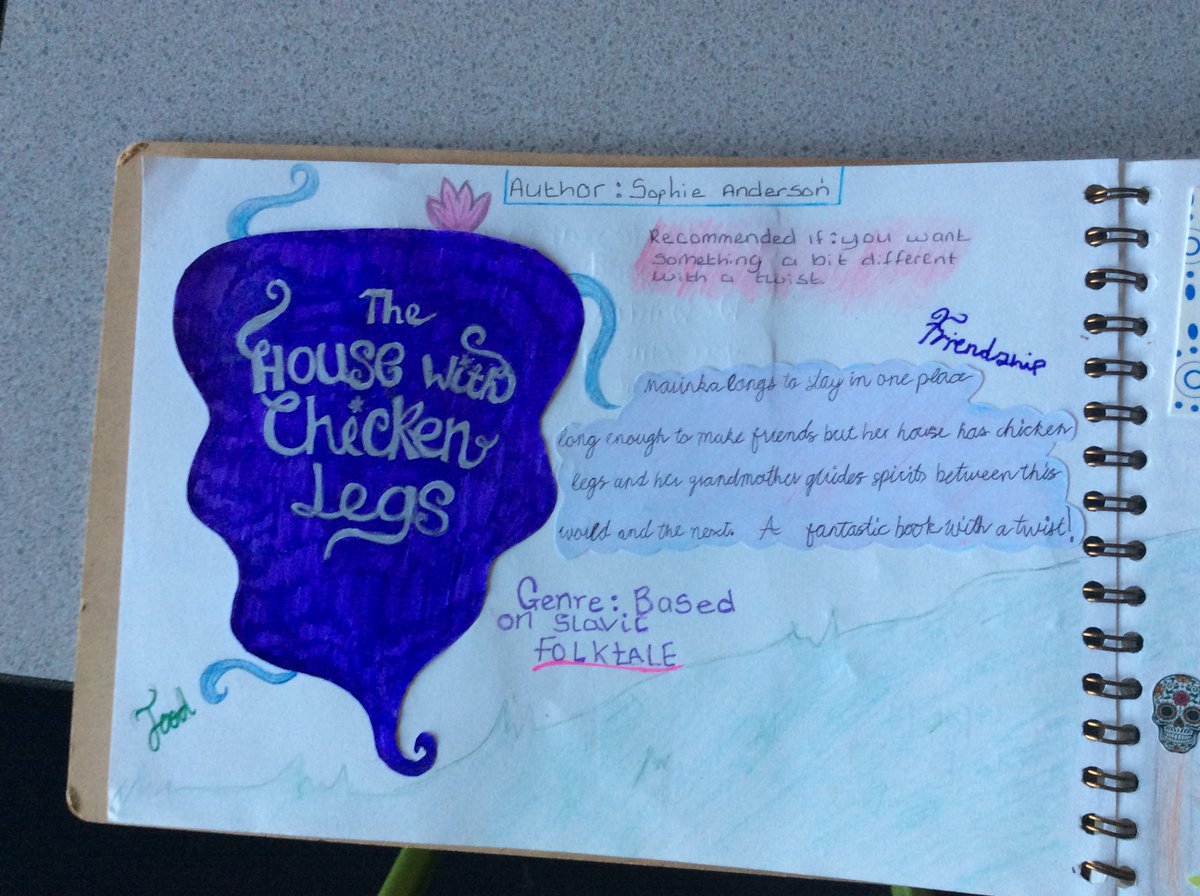 Author: Sophie Anderson
Recommended if: you want
something a bit different
with a twist.
The
House with
Chicken
Legs
Friendship
Marinka longs to stay in one place
long enough to make friends but her house has chicken
legs and her grandmother guides spirits between this
world and the next. A fantastic book with a twist!
Genre: Based
on Slavic
FOLKtALE
Food